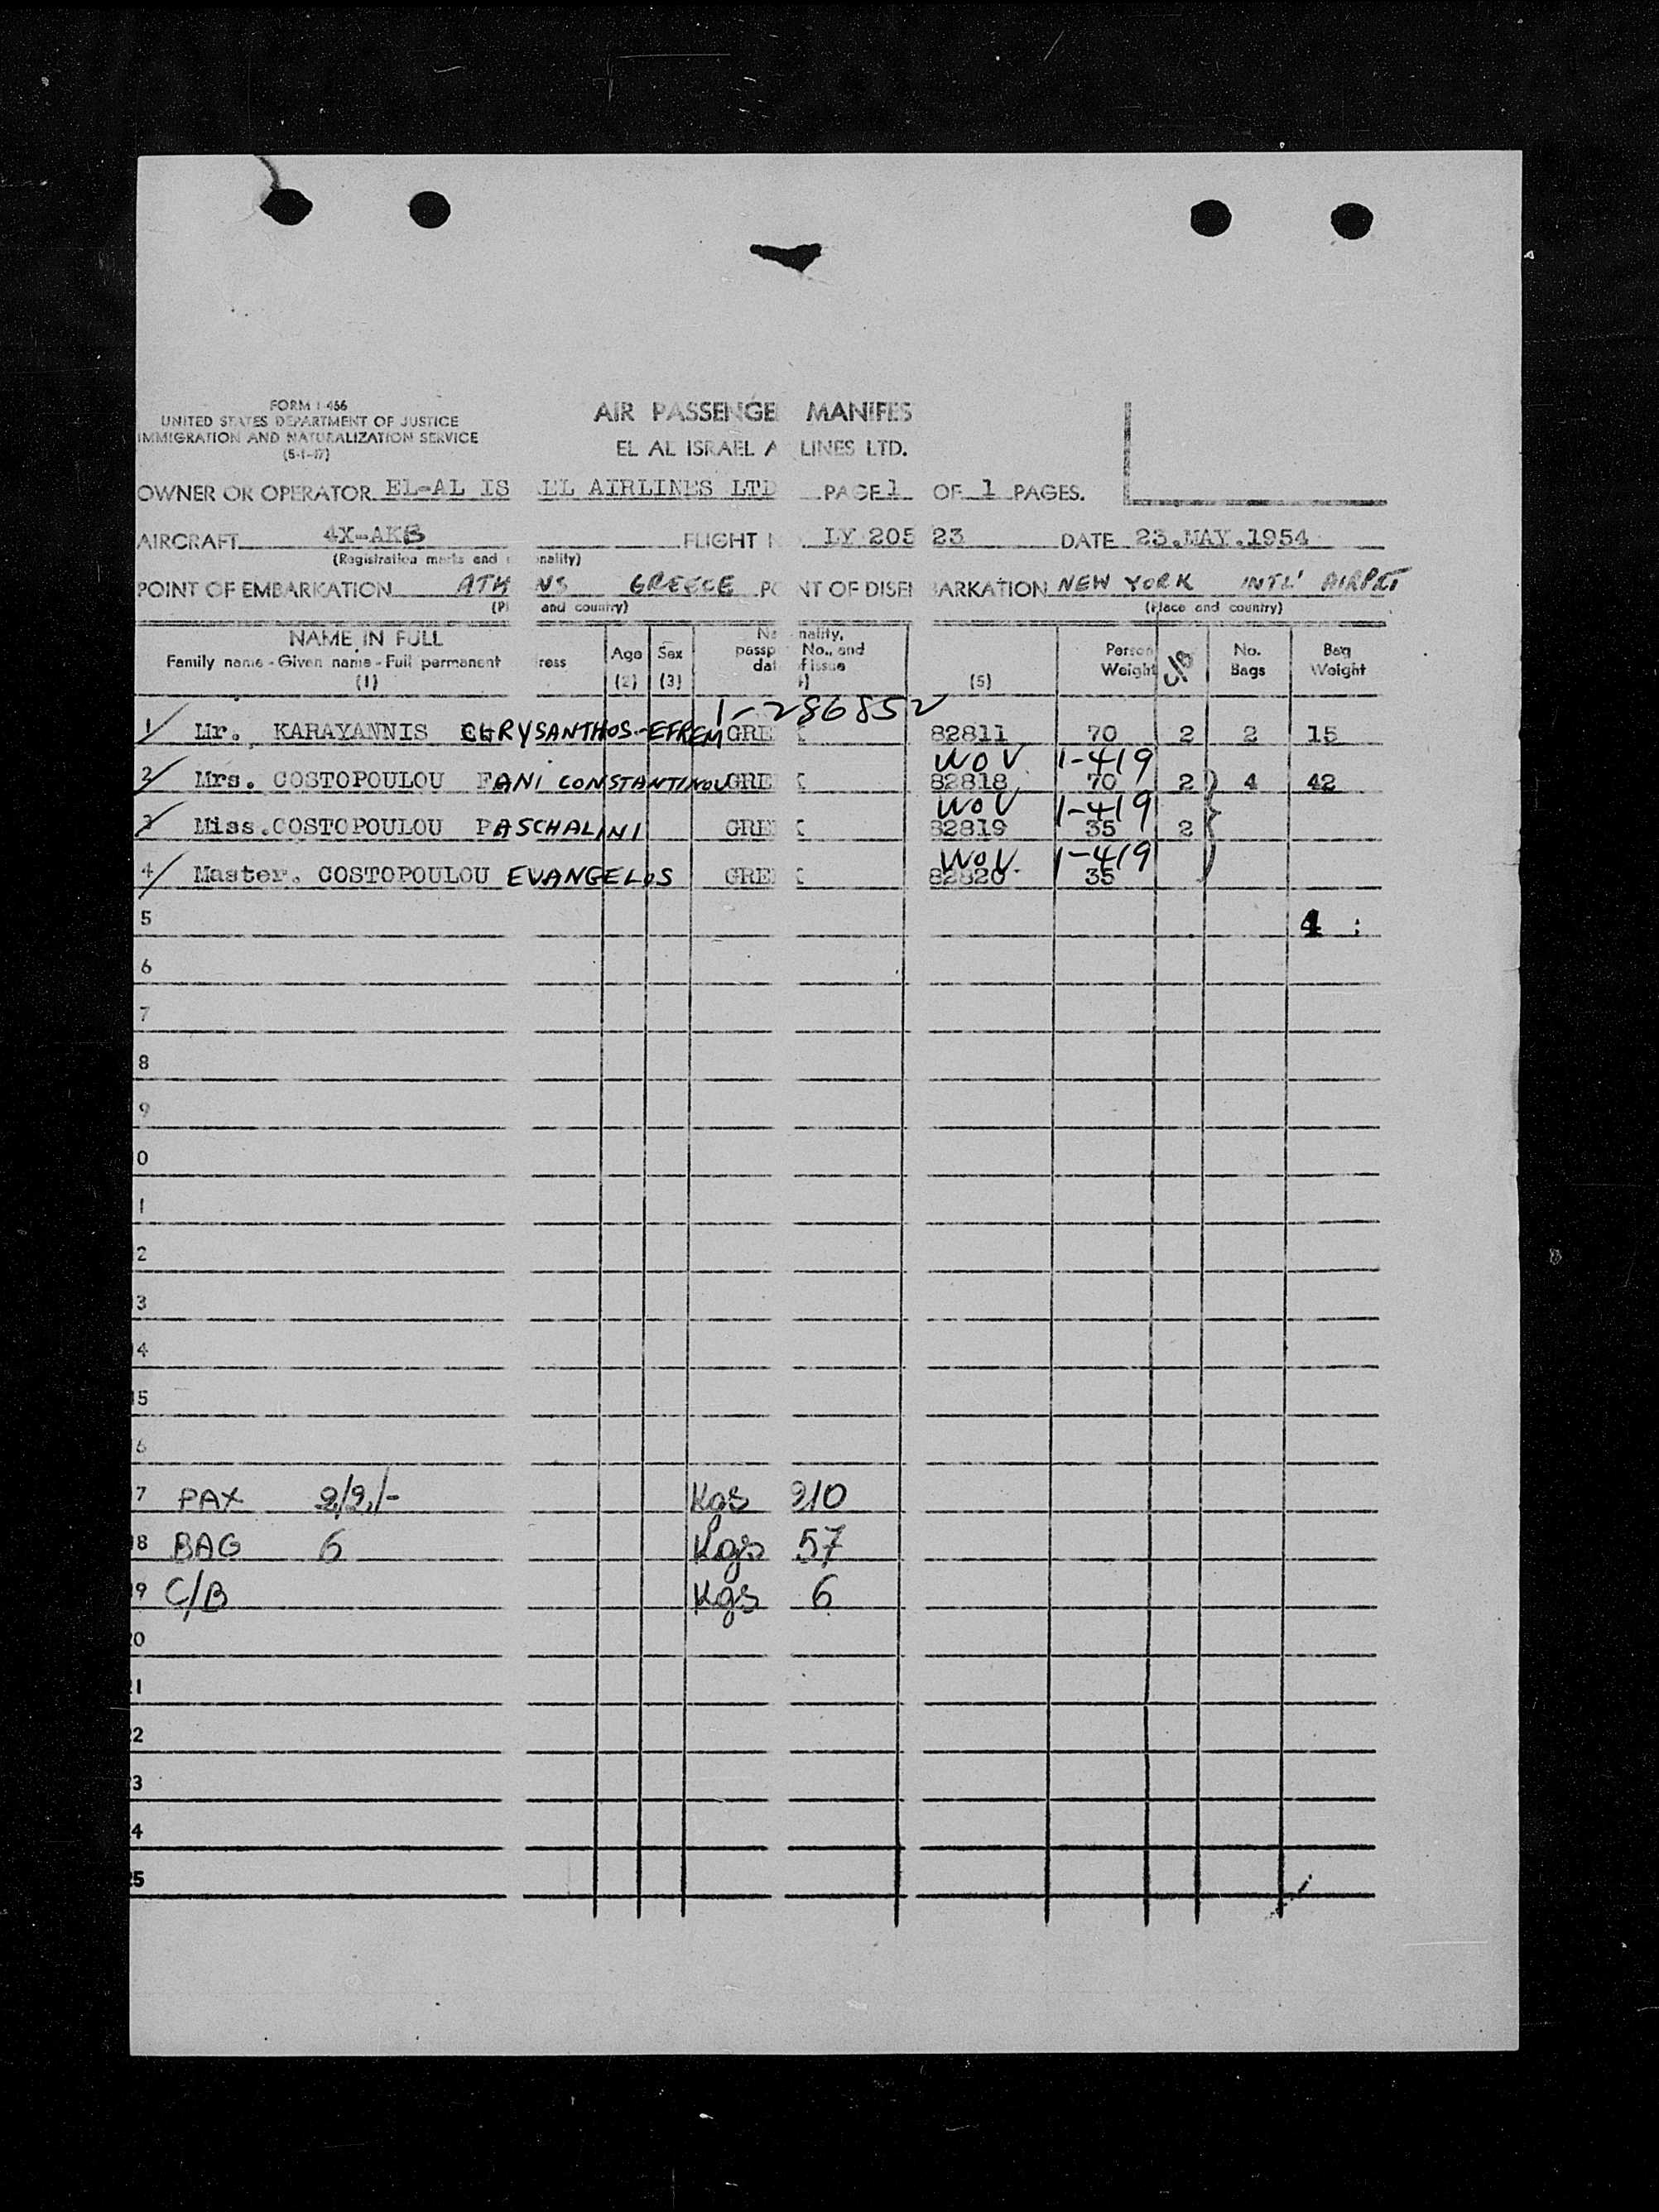 FORM I-466
UNITED STATES DEPARTMENT OF JUSTICE
IMMIGRATION AND NATURALIZATION SERVICE
AIR PASSENGE MANIFES
EL AL ISRAEL A LINES LTD.
OWNER OR OPERATOR EL-AL IS EL AIRLINES LTD PAGE 1 OF 1 PAGES.
AIRCRAFT 4X-AKB FLIGHT N LY 205 23 DATE 23.MAY.1954
(Registration marks and onality)
POINT OF EMBARKATION ATH NS GREECE PO NT OF DISEM BARKATION NEW YORK INTL' AIRPRT
(Pl and country) (Place and country)
NAME IN FULL
Family name - Given name - Full permanent ress
(1)
Age
(2)
Sex
(3)
Na nality,
passp No., and
dat f issue
(5)
Person
Weight
C/B
No.
Bags
Bag
Weight
1-286852
1 Mr. KARAYANNIS CHRYSANTHOS-EFREM GRE K 82811 70 2 2 15
WOV 1-419
2 Mrs. COSTOPOULOU FANI CONSTANTINOU GRE K 82818 70 2 4 42
WOV 1-419
3 Miss. COSTOPOULOU PASCHALINI GRE K 82819 35 2
WOV. 1-419
4 Master. COSTOPOULOU EVANGELOS GRE K 82820 35
5 4 :
6
7
8
9
0
1
2
3
4
15
6
7 PAX 2/2/- Kgs 210
18 BAG 6 Kgs 57
19 C/B Kgs 6
20
21
22
3
4
25